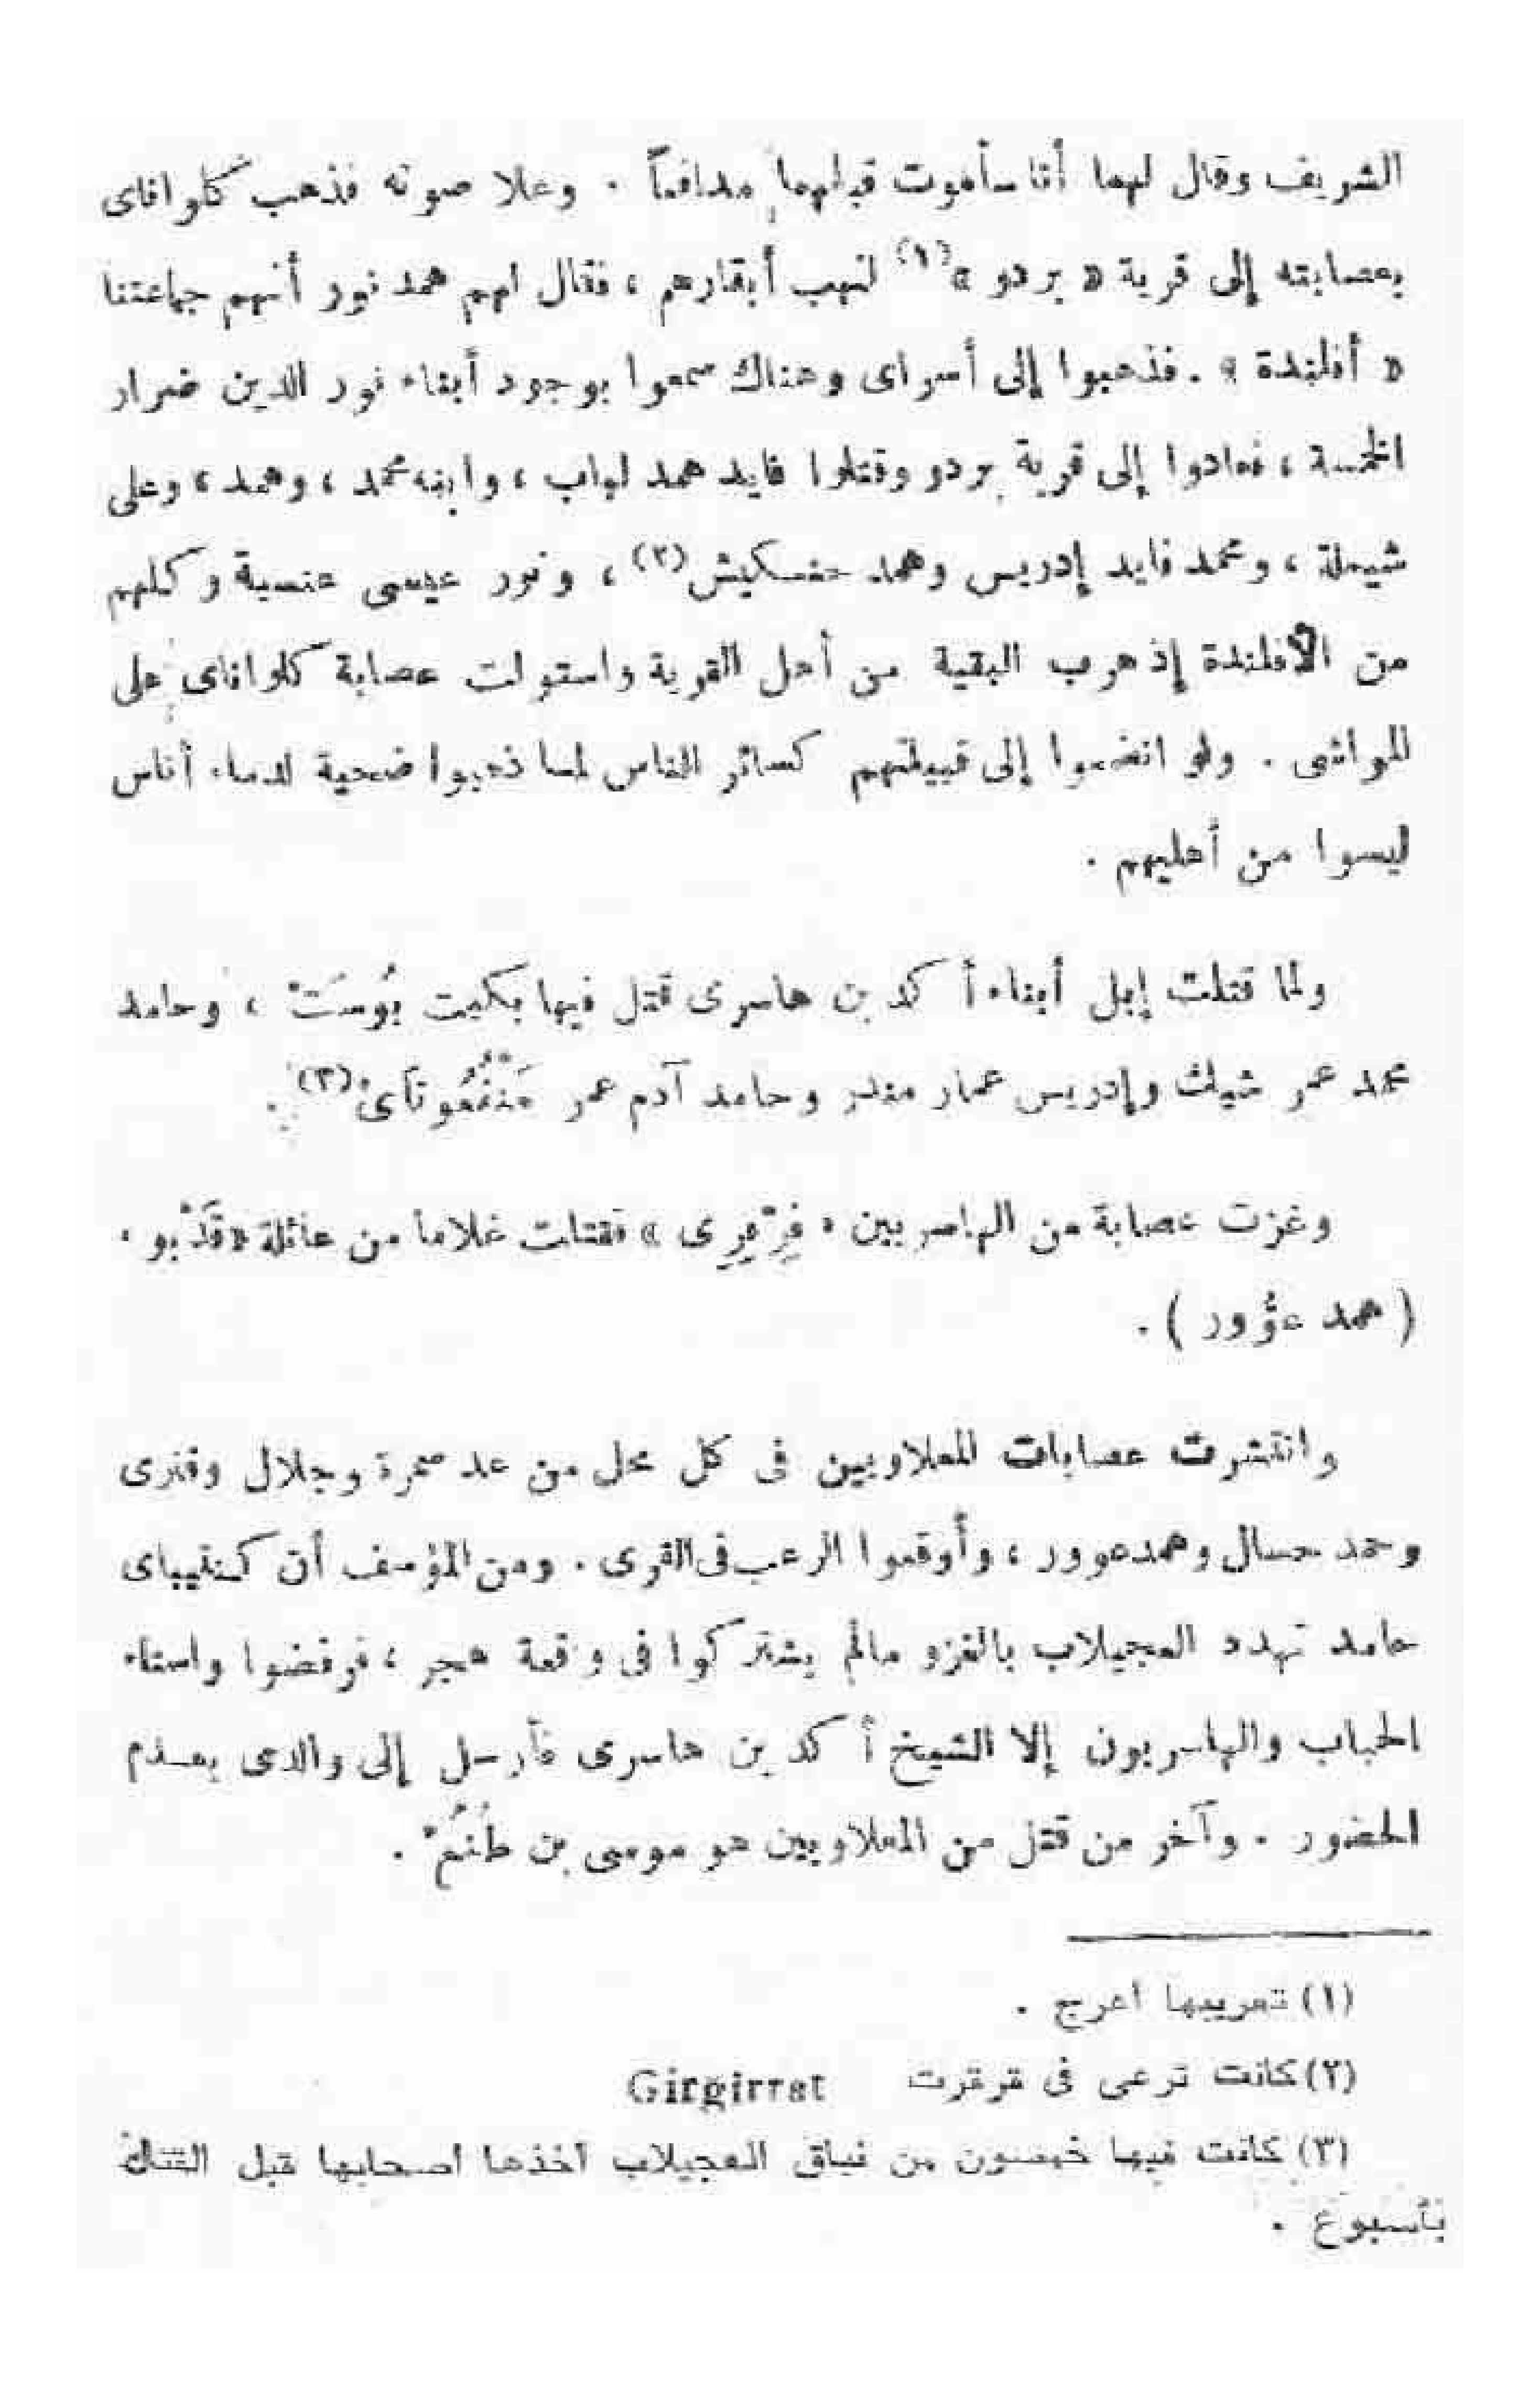 الشريف وقال لهما أنا سأموت قبلهما مدافعاً . وعلا صوته فذهب كلواناى
بعصابته إلى قرية « بردو »(١) لنهب أبقارهم ، فقال لهم همد نور أنهم جماعتنا
« أفلندة » . فذهبوا إلى أسراى وهناك سمعوا بوجود أبناء نور الدين ضرار
الخمسة ، فعادوا إلى قرية بردو وقتلوا فايد همد لباب ، وابنه محمد ، وهمد ، وعلى
شيملة ، ومحمد فايد إدريس وهمد حفسكيش(٢) ، ونور عيسى عنسية وكلهم
من الأفلندة إذ هرب البقية من أهل القرية واستولت عصابة كلواناى على
المواشى . ولو انضموا إلى قبيلتهم كسائر الناس لما ذهبوا ضحية لدماء أناس
ليسوا من أهليهم .
ولما قتلت إبل أبناء أكد بن هاسرى قتل فيها بكيت بُوسَتْ ، وحامد
محمد عمر شيلث وإدريس عمار مندر وحامد آدم عمر (٣) .
وغزت عصابة من الهاسريين « فِرْفِرِى » فقتلت غلاما من عائلة « قَدْبو .
( همد عوُّور ) .
وانتشرت عصابات المعلاويين فى كل محل من عد صمرة وجلال وقنرى
وحمد حسال وهمد عوور ، وأوقعوا الرعب فى القرى . ومن المؤسف أن كنتيباى
حامد تهدد العجيلاب بالغزو مالم يشتركوا فى وقعة هجر ، فرفضوا واستاء
الحباب والهاسريون إلا الشيخ أكد بن هاسرى فأرسل إلى والدى بعدم
الحضور . وآخر من قتل من المعلاويين هو موسى بن طُنُمْ .
(١) تعريبها أعرج .
(٢) كانت ترعى فى قرقرت Girgirrat
(٣) كانت فيها خمسون من نياق العجيلاب أخذها أصحابها قبل القتال
بأسبوع .